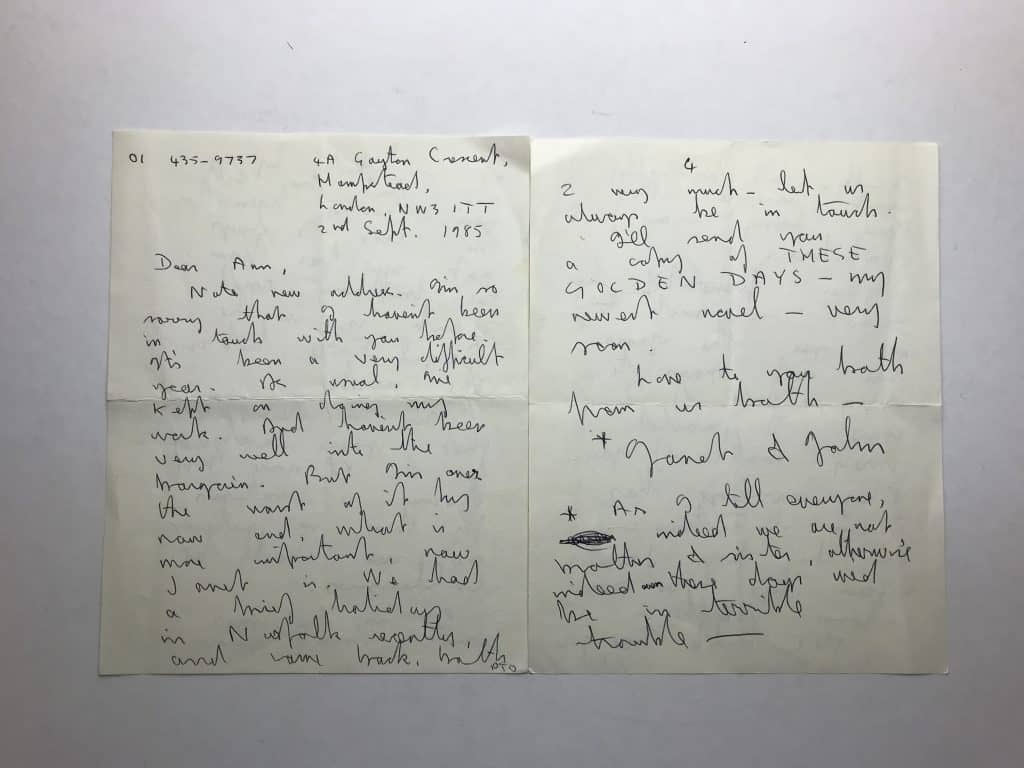 01 435-9737
4A Gayton Crescent,
Hampstead,
London. NW3 1TT
2nd Sept. 1985
Dear Ann,
Note new address. I'm so
sorry that I haven't been
in touch with you before.
It's been a very difficult
year. As usual, I've
kept on doing my
work. And haven't been
very well into the
bargain. But I'm over
the worst of it by
now and, what is
more important, now
Janet is. We had
a brief holiday
in Norfolk recently,
and came back, both
PTO
4
2 very much - let us
always be in touch.
I'll send you
a copy of THESE
GOLDEN DAYS - my
newest novel - very
soon.
Love to you both
from us both -
* Janet & John
* As I tell everyone,
indeed we are not
brother & sister, otherwise
indeed these days we'd
be in terrible
trouble -